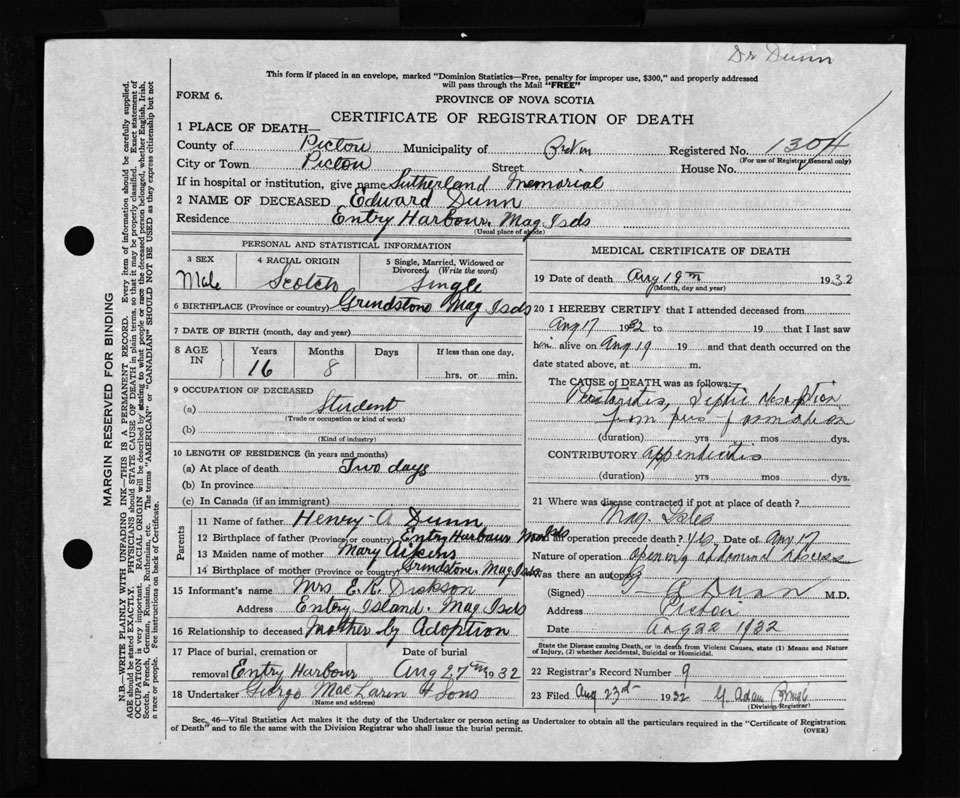 Dr Dunn
This form if placed in an envelope, marked "Dominion Statistics—Free, penalty for improper use, $300," and properly addressed
will pass through the Mail "FREE"
FORM 6.
PROVINCE OF NOVA SCOTIA
CERTIFICATE OF REGISTRATION OF DEATH
1 PLACE OF DEATH—
County of Pictou Municipality of Registered No. 1304
(For use of Registrar General only)
City or Town Pictou Street House No.
If in hospital or institution, give name Sutherland Memorial
2 NAME OF DECEASED Edward Dunn
Residence Entry Harbour, Mag Isds
(Usual place of abode)
PERSONAL AND STATISTICAL INFORMATION
3 SEX 4 RACIAL ORIGIN 5 Single, Married, Widowed or Divorced (Write the word)
Male Scotch Single
6 BIRTHPLACE (Province or country) Grindstone Mag Isds
7 DATE OF BIRTH (month, day and year)
8 AGE IN Years Months Days If less than one day,
16 8 hrs. or min.
9 OCCUPATION OF DECEASED
(a) Student
(Trade or occupation or kind of work)
(b)
(Kind of industry)
10 LENGTH OF RESIDENCE (in years and months)
(a) At place of death Two days
(b) In province
(c) In Canada (if an immigrant)
Parents
11 Name of father Henry A Dunn
12 Birthplace of father (Province or country) Entry Harbour Mag Isds
13 Maiden name of mother Mary Aikens
14 Birthplace of mother (Province or country) Grindstone, Mag Isds
15 Informant's name Mrs E. K. Dickson
Address Entry Island. Mag Isds
16 Relationship to deceased Mother by Adoption
17 Place of burial, cremation or Date of burial
removal Entry Harbour Aug 27th 1932
18 Undertaker George MacLaren & Sons
(Name and address)
MEDICAL CERTIFICATE OF DEATH
19 Date of death Aug 19th 1932
(Month, day and year)
20 I HEREBY CERTIFY that I attended deceased from
Aug 17 1932 to 19 that I last saw
him alive on Aug 19 19 and that death occurred on the
date stated above, at m.
The CAUSE of DEATH was as follows:
Peritonitis, Septic
from pus formation
(duration) yrs mos dys.
CONTRIBUTORY appendicitis
(duration) yrs mos dys.
21 Where was disease contracted if not at place of death?
Mag. Isles
Did an operation precede death? Yes. Date of Aug 17
Nature of operation Opening abdominal abscess
Was there an autopsy
(Signed) Dunn M.D.
Address Pictou
Date Aug 22 1932
State the Disease causing Death, or in Death from Violent Causes, state (1) Means and Nature
of Injury, (2) whether Accidental, Suicidal or Homicidal.
22 Registrar's Record Number 9
23 Filed Aug 23rd 1932 G. Adam
(Division Registrar)
Sec. 46—Vital Statistics Act makes it the duty of the Undertaker or person acting as Undertaker to obtain all the particulars required in the "Certificate of Registration
of Death" and to file the same with the Division Registrar who shall issue the burial permit.
(OVER)
MARGIN RESERVED FOR BINDING
N.B.—WRITE PLAINLY WITH UNFADING INK—THIS IS A PERMANENT RECORD. Every item of information should be carefully supplied.
AGE should be stated EXACTLY. PHYSICIANS should STATE CAUSE OF DEATH in plain terms, so that it may be properly classified. Exact statement of
OCCUPATION is very important. RACIAL ORIGIN will be described by stating to what people or race the deceased person belonged, whether English, Irish,
Scotch, French, German, Russian, Ruthenian, etc. The terms "AMERICAN" or "CANADIAN" SHOULD NOT BE USED as they express citizenship but not
a race or people. See instructions on back of Certificate.